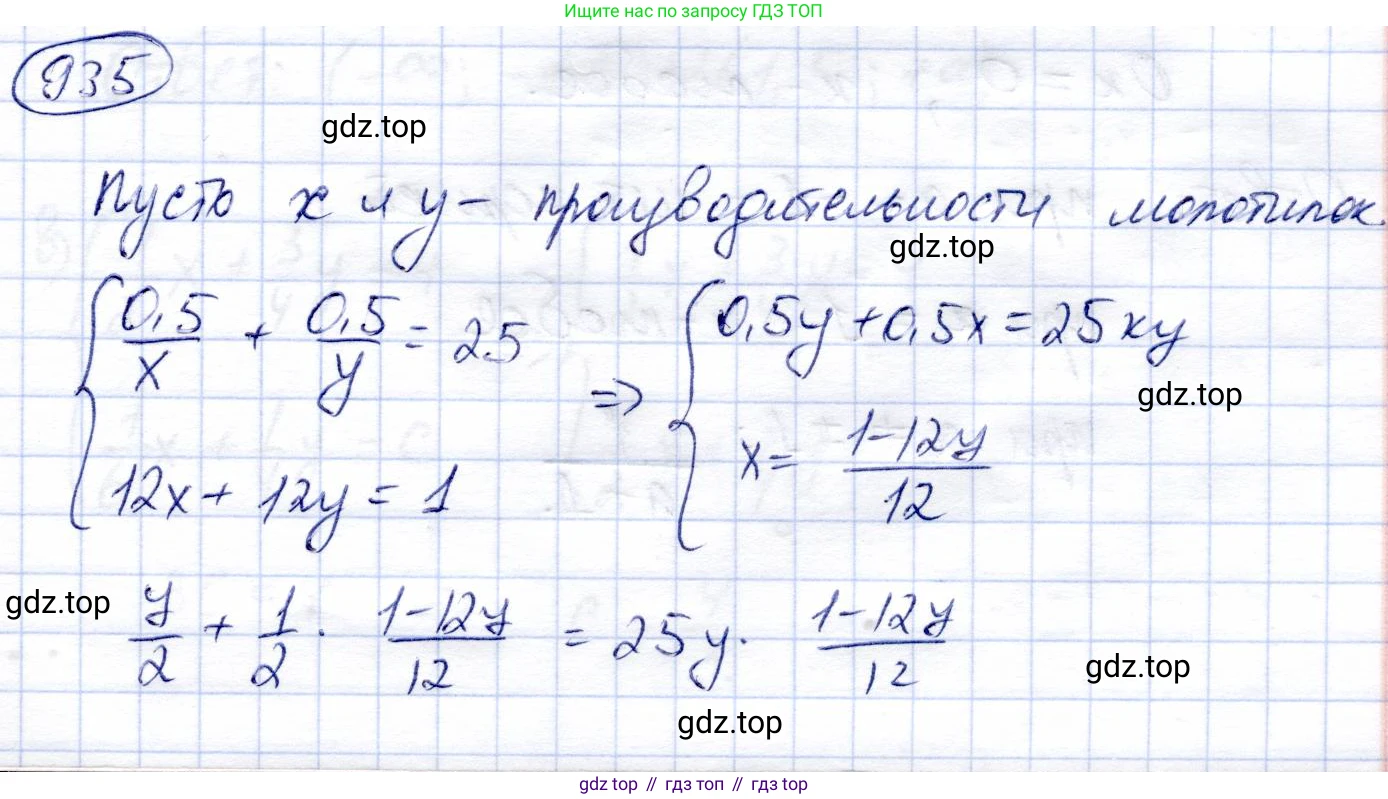 Ищите нас по запросу ГДЗ ТОП
935
gdz.top
Пусть x и y - производительности молотилок.
gdz.top
{ 0,5/x + 0,5/y = 25 => { 0,5y + 0,5x = 25xy
gdz.top
12x + 12y = 1 x = (1-12y)/12
gdz.top
y/2 + 1/2 · (1-12y)/12 = 25y · (1-12y)/12
gdz.top
gdz.top
gdz top // гдз топ // гдз top